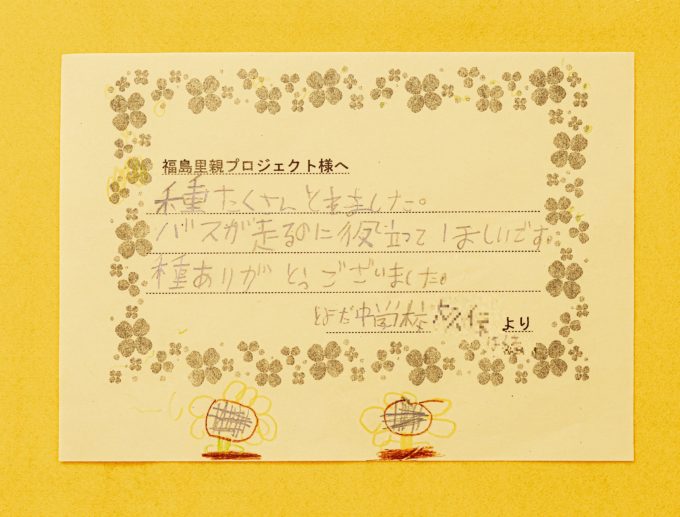 福島里親プロジェクト様へ
種たくさんとれました。
バスが走るのに役立ってほしいです。
種ありがとうございました。
より